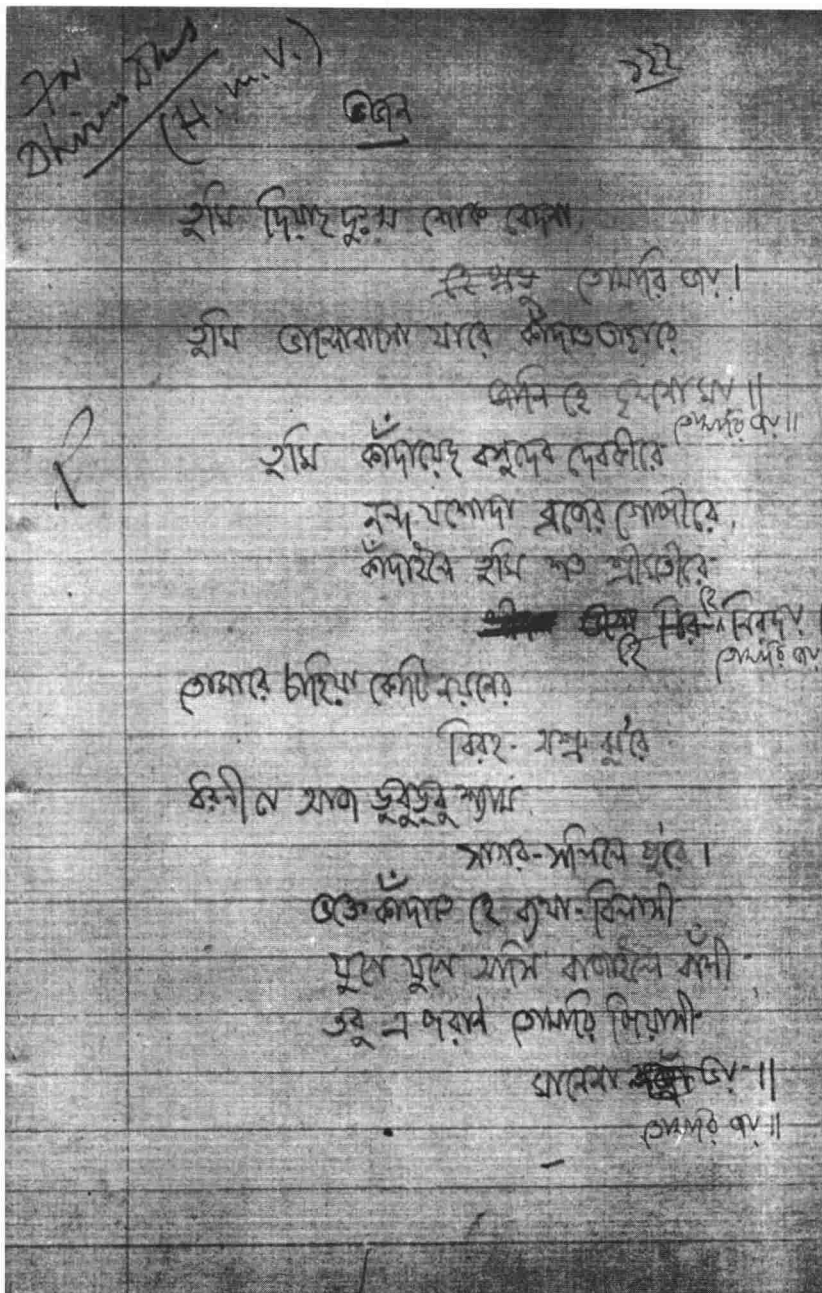 Dhiren Das
(H.M.V.)
১২২
ভজন
তুমি দিয়াছ দুঃখ শোক বেদনা,
হে প্রভু তোমারি জয়।
তুমি ভালোবাসো যারে কাঁদাও তাহারে
জানি হে ছলনাময়॥
তোমারি জয়॥
তুমি কাঁদায়েছ বসুদেব দেবকীরে
নন্দ যশোদা ব্রজের গোপীরে,
কাঁদাইলে তুমি শত শ্রীমতীরে
হে চির নিরদয়।
তোমারি জয়
তোমারে চাহিয়া কোটি নয়নের
বিরহ-অশ্রু ঝুরে
ধরণী যে আজ ডুবুডুবু শ্যাম,
সাগর-সলিলে পূরে।
ভক্তে কাঁদাও হে ব্যথা-বিলাসী
যুগে যুগে আসি বাজাইলে বাঁশী
তবু এ পরাণ তোমারি পিয়াসী
মানেনা ভয়॥
তোমারি জয়॥